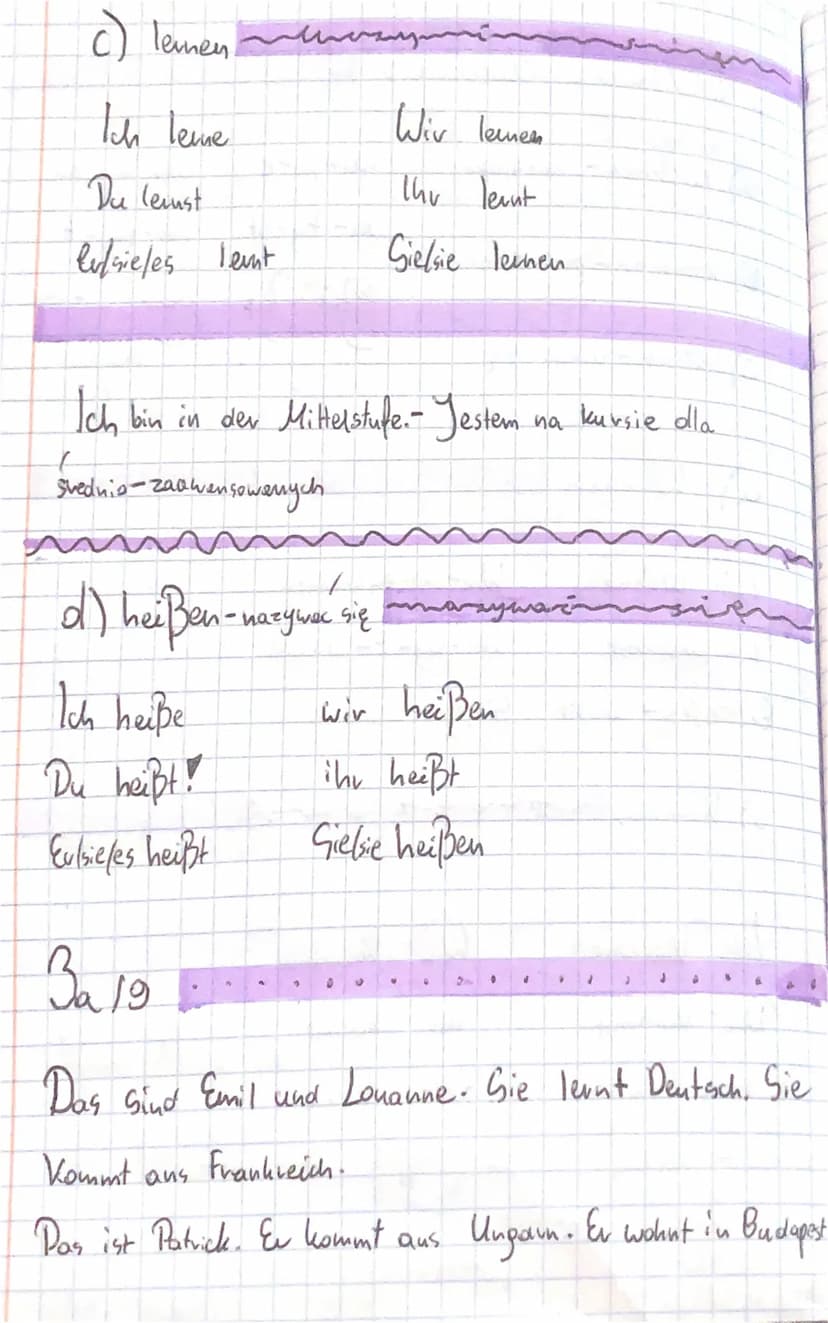 c) lernen uczyć się
Ich lerne Wir lernen
Du lernst Ihr lernt
Er/sie/es lernt Sie/sie lernen
Ich bin in der Mittelstufe. - Jestem na kursie dla
średnio-zaawansowanych
d) heißen - nazywać się nazywać się
Ich heiße wir heißen
Du heißt! ihr heißt
Er/sie/es heißt Sie/sie heißen
3a/9
Das sind Emil und Louanne. Sie lernt Deutsch. Sie
kommt aus Frankreich.
Das ist Patrick. Er kommt aus Ungarn. Er wohnt in Budapest